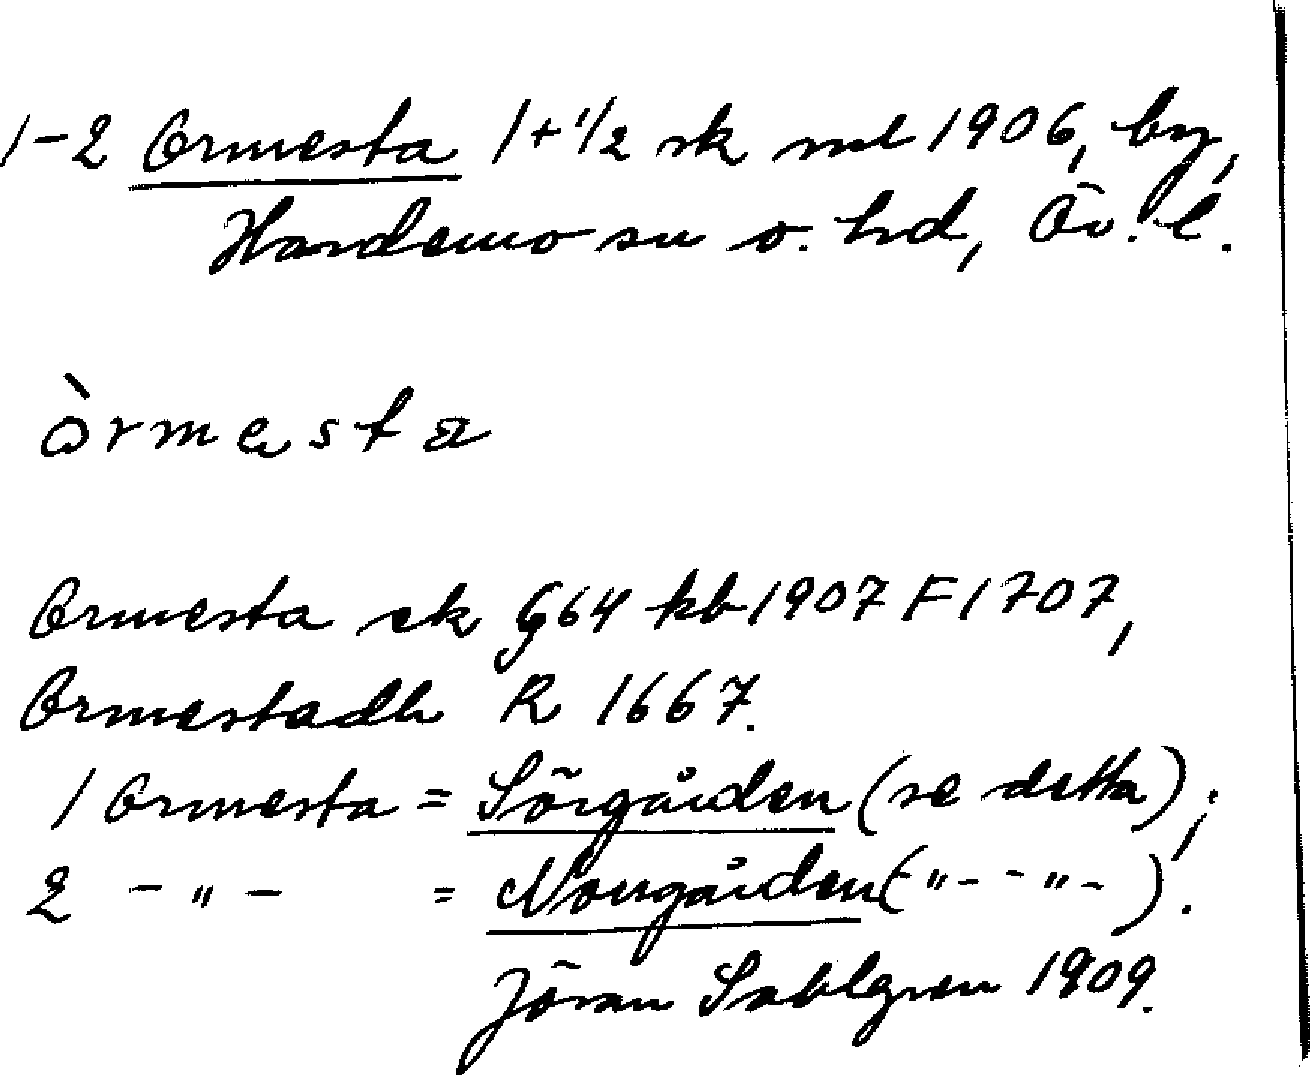 1-2 Ormesta 1+1/2 sk ml 1906, by,
Hardemo sn o. hd, Ör. l.
òrmesta
Ormesta ek G64 kb 1907 F 1707,
Ormestadh R 1667.
1 Ormesta = Sörgården (se detta);
2 - " - = Norrgården (- " - - " -).
Jöran Sahlgren 1909.